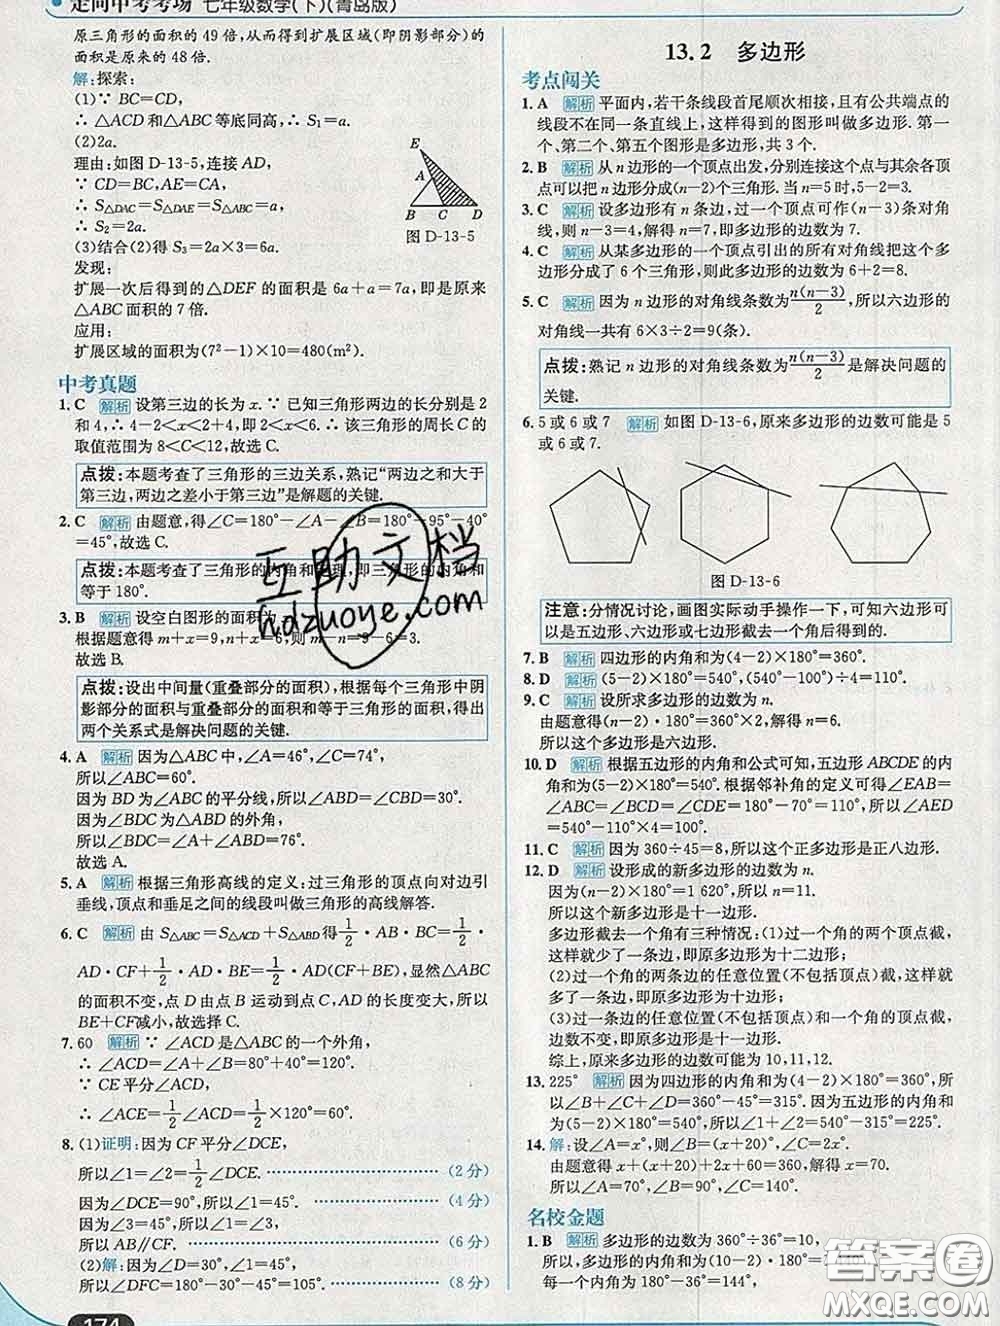 走向中考考场 七年级数学(下)(青岛版)
原三角形的面积的49倍,从而得到扩展区域(即阴影部分)的
面积是原来的48倍.
解:探索:
(1)∵ BC=CD,
∴ △ACD和△ABC等底同高,∴ S₁=a.
(2)2a.
理由:如图D-13-5,连接AD,
∵ CD=BC,AE=CA,
∴ S△DAC=S△DAE=S△ABC=a,
∴ S₂=2a.
(3)结合(2)得 S₃=2a×3=6a.
E
A
B C D
图 D-13-5
发现:
扩展一次后得到的△DEF的面积是6a+a=7a,即是原来
△ABC面积的7倍.
应用:
扩展区域的面积为(7²-1)×10=480(m²).
中考真题
1. C 解析 设第三边的长为x.∵ 已知三角形两边的长分别是2
和4,∴ 4-2<x<2+4,即2<x<6.∴ 该三角形的周长C的
取值范围为8<C<12,故选C.
点拨:本题考查了三角形的三边关系,熟记“两边之和大于
第三边,两边之差小于第三边”是解题的关键.
2. C 解析 由题意,得∠C=180°-∠A-∠B=180°-95°-40°
=45°,故选C.
点拨:本题考查了三角形的内角和定理,即三角形的内角和
等于180°.
3. B 解析 设空白图形的面积为
根据题意得 m+x=9,n+x=6,则m-n=9-6=3.
故选B.
点拨:设出中间量(重叠部分的面积),根据每个三角形中阴
影部分的面积与重叠部分的面积和等于三角形的面积,得出
两个关系式是解决问题的关键.
4. A 解析 因为△ABC中,∠A=46°,∠C=74°,
所以∠ABC=60°.
因为BD为∠ABC的平分线,所以∠ABD=∠CBD=30°.
因为∠BDC为△ABD的外角,
所以∠BDC=∠A+∠ABD=76°.
故选A.
5. A 解析 根据三角形高线的定义:过三角形的顶点向对边引
垂线,顶点和垂足之间的线段叫做三角形的高线解答.
6. C 解析 由 S△ABC=S△ACD+S△ABD得1/2·AB·BC=1/2·
AD·CF+1/2·AD·BE=1/2·AD(CF+BE),显然△ABC
的面积不变,点D由点B运动到点C,AD的长度变大,所以
BE+CF减小,故选择C.
7. 60 解析 ∵ ∠ACD是△ABC的一个外角,
∴ ∠ACD=∠A+∠B=80°+40°=120°.
∵ CE平分∠ACD,
∴ ∠ACE=1/2∠ACD=1/2×120°=60°.
8. (1)证明:因为CF平分∠DCE,
所以∠1=∠2=1/2∠DCE. (2分)
因为∠DCE=90°,所以∠1=45°. (4分)
因为∠3=45°,所以∠1=∠3,
所以AB∥CF. (6分)
(2)解:因为∠D=30°,∠1=45°,
所以∠DFC=180°-30°-45°=105°. (8分)
174
13.2 多边形
考点闯关
1. A 解析 平面内,若干条线段首尾顺次相接,且有公共端点的
线段不在同一条直线上,这样得到的图形叫做多边形.第一
个、第二个、第五个图形是多边形,共3个.
2. B 解析 从n边形的一个顶点出发,分别连接这个点与其余各顶
点可以把n边形分成(n-2)个三角形.当n=5时,5-2=3.
3. C 解析 设多边形有n条边,过一个顶点可作(n-3)条对角
线,则n-3=4,解得n=7,即多边形的边数为7.
4. C 解析 从某多边形的一个顶点引出的所有对角线把这个多
边形分成了6个三角形,则此多边形的边数为6+2=8.
5. C 解析 因为n边形的对角线条数为n(n-3)/2,所以六边形的
对角线一共有6×3÷2=9(条).
点拨:熟记n边形的对角线条数为n(n-3)/2是解决问题的
关键.
6. 5或6或7 解析 如图D-13-6,原来多边形的边数可能是5
或6或7.
图 D-13-6
注意:分情况讨论,画图实际动手操作一下,可知六边形可
以是五边形、六边形或七边形截去一个角后得到的.
7. B 解析 四边形的内角和为(4-2)×180°=360°.
8. D 解析 (5-2)×180°=540°,(540°-100°)÷4=110°.
9. C 解析 设所求多边形的边数为n.
由题意得(n-2)·180°=360°×2,解得n=6.
所以这个多边形是六边形.
10. D 解析 根据五边形的内角和公式可知,五边形ABCDE的内
角和为(5-2)×180°=540°.根据邻补角的定义可得∠EAB=
∠ABC=∠BCD=∠CDE=180°-70°=110°,所以∠AED
=540°-110°×4=100°.
11. C 解析 因为360÷45=8,所以这个正多边形是正八边形.
12. D 解析 设形成的新多边形的边数为n.
因为(n-2)×180°=1 620°,所以n=11.
所以这个新多边形是十一边形.
多边形截去一个角有三种情况:(1)过一个角的两个顶点截,
这样就少了一条边,即原多边形为十二边形;
(2)过一个角的两条边的任意位置(不包括顶点)截,这样就
多了一条边,即原多边形为十边形;
(3)过一条边的任意位置(不包括顶点)和一个角的顶点截,
边数不变,即原多边形是十一边形.
综上,原来多边形的边数可能为10,11,12.
13. 225° 解析 因为四边形的内角和为(4-2)×180°=360°,所
以∠B+∠C+∠D=360°-45°=315°.因为五边形的内角和
为(5-2)×180°=540°,所以∠1+∠2=540°-315°=225°.
14. 解:设∠A=x°,则∠B=(x+20)°,∠C=2x°.
由题意得x+(x+20)+2x+60=360.解得x=70.
所以∠A=70°,∠B=90°,∠C=140°.
名校金题
1. B 解析 多边形的边数为360°÷36°=10,
所以,多边形的内角和为(10-2)·180°=
每一个内角为180°-36°=144°,
互助文档
hdzuoye.com
答案圈
MXQE.COM